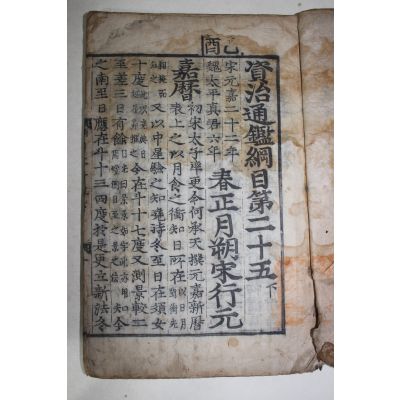 資治通鑑綱目第二十五下
乙酉
宋元嘉二十二年
魏太平真君六年
春正月朔宋行元
嘉曆
初宋太子率更令何承天撰元嘉新曆
表上之以月食之衝知日所在
又以中星驗之知堯時冬至日在須女
十度
今在斗十七度又測景較二
至差三日有餘
知今
之南至日應在斗十三四度於是更立新法冬